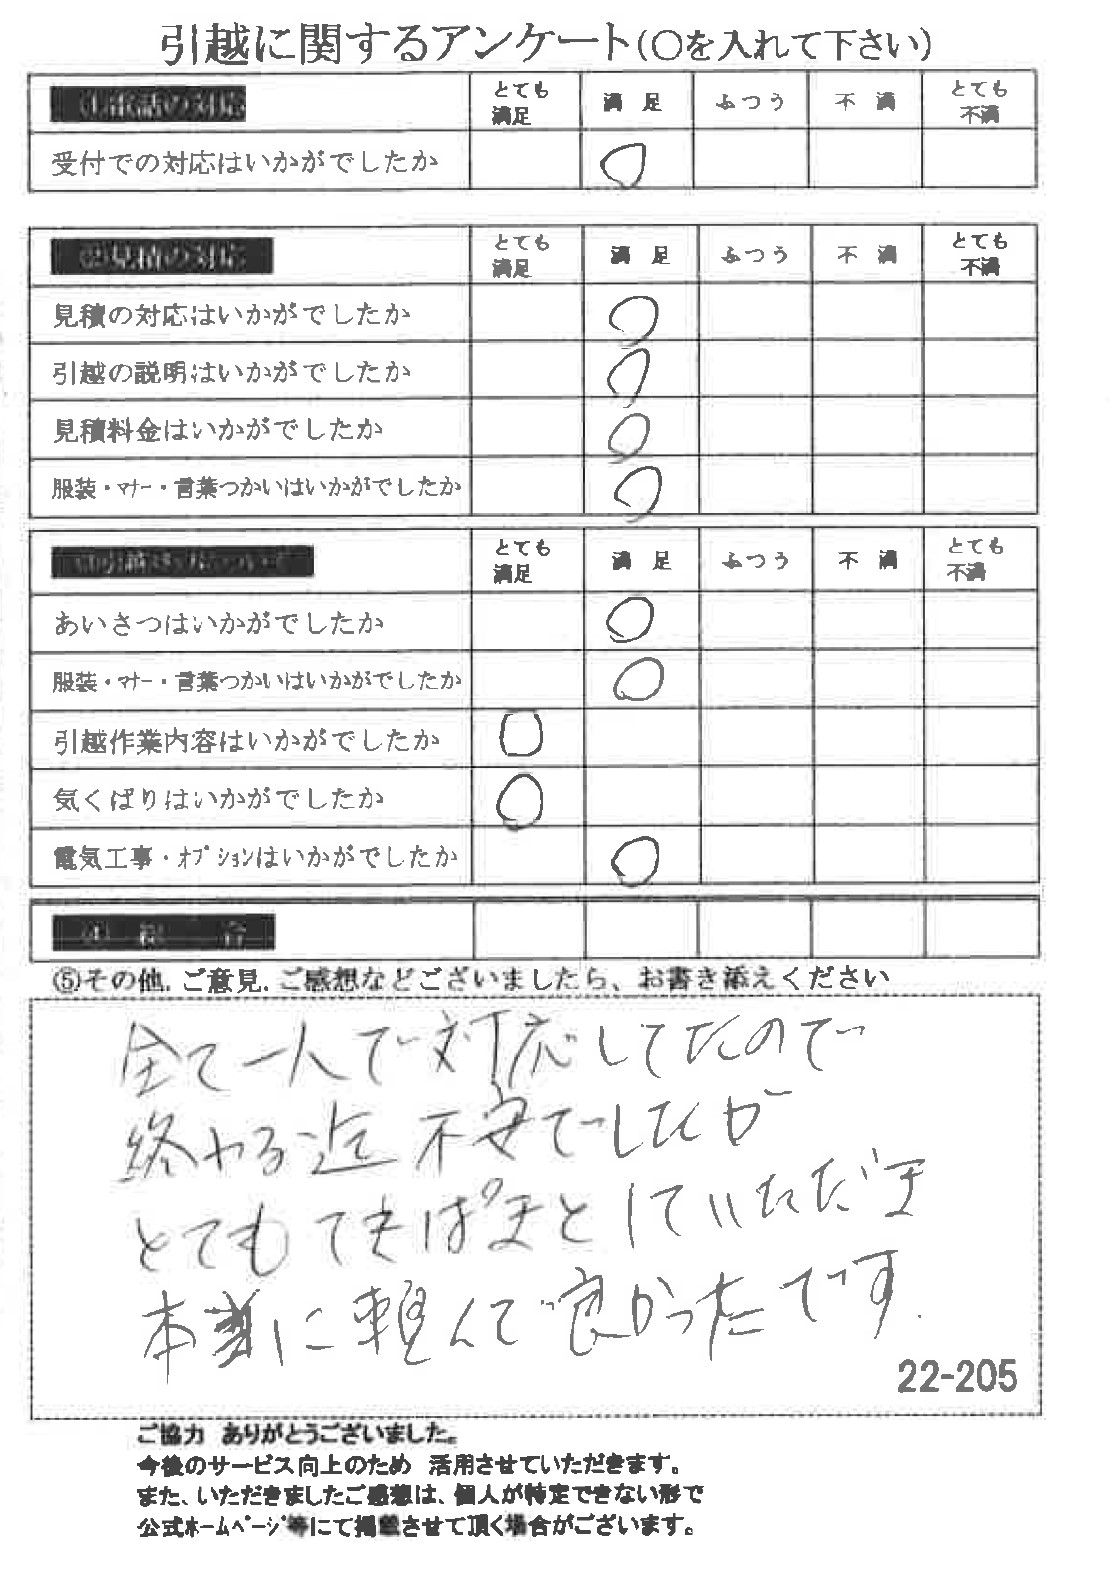 引越に関するアンケート(○を入れて下さい)
①電話の対応 とても満足 満足 ふつう 不満 とても不満
受付での対応はいかがでしたか
②見積の対応 とても満足 満足 ふつう 不満 とても不満
見積の対応はいかがでしたか
引越の説明はいかがでしたか
見積料金はいかがでしたか
服装・マナー・言葉つかいはいかがでしたか
とても満足 満足 ふつう 不満 とても不満
あいさつはいかがでしたか
服装・マナー・言葉つかいはいかがでしたか
引越作業内容はいかがでしたか
気くばりはいかがでしたか
電気工事・オプションはいかがでしたか
④総合
⑤その他.ご意見.ご感想などございましたら、お書き添えください
全て一人で対応してたので
終わる迄不安でしたが
とてもてきぱきとしていただき
本当に頼んで良かったです.
22-205
ご協力 ありがとうございました。
今後のサービス向上のため 活用させていただきます。
また、いただきましたご感想は、個人が特定できない形で
公式ホームページ等にて掲載させて頂く場合がございます。